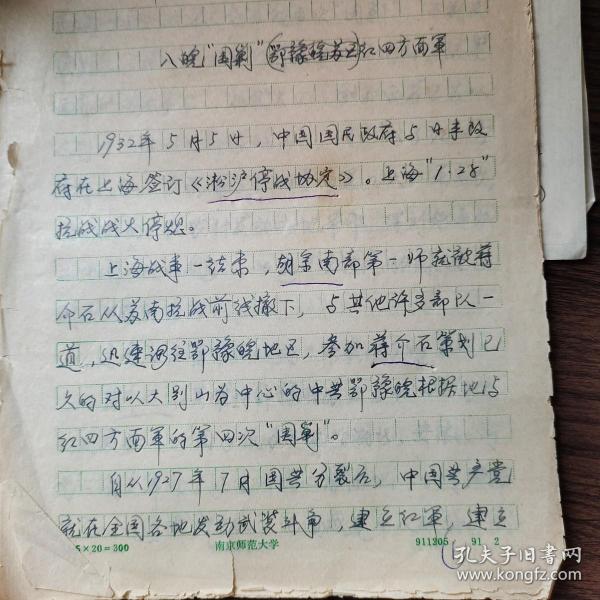 入皖“围剿”(鄂豫皖苏区)红四方面軍
1932年5月5日，中国国民政府与日本政
府在上海签订《淞沪停战协定》。上海“1·28”
抗战战火停熄。
上海战事一结束，胡宗南部第一师就被蒋
介石从苏南抗战前线撤下，与其他许多部队一
道，迅速调往鄂豫皖地区，参加蒋介石策划已
久的对以大别山为中心的中共鄂豫皖根据地与
红四方面軍的第四次“围剿”。
自从1927年7月国共分裂后，中国共产党
就在全国各地发动武装斗争，建立红軍，建立
5×20=300 南京师范大学 911205 91 2
孔夫子旧书网
www.kongfz.com